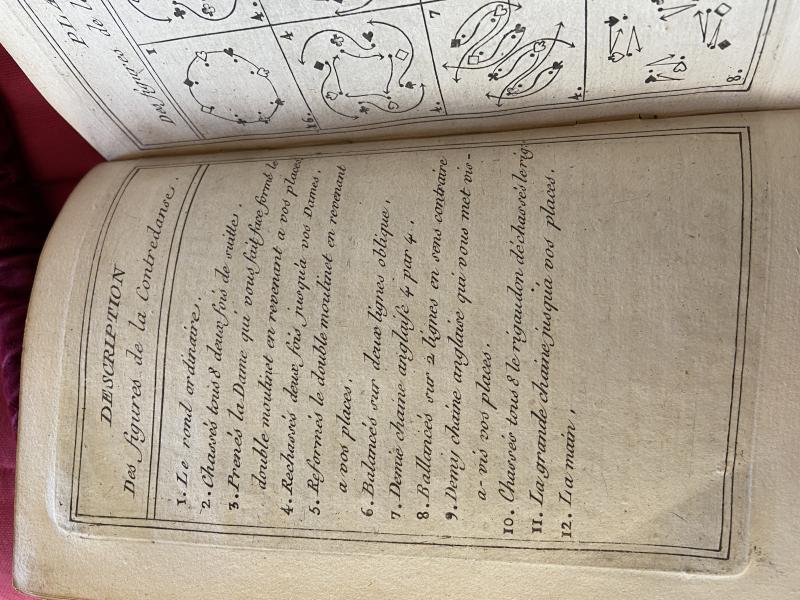 DESCRIPTION
Des figures de la Contredanse.
1. Le rond ordinaire.
2. Chassés tous 8 deux fois de suitte.
3. Prenés la Dame qui vous fait face formé le
double moulinet en revenant a vos places
4. Rechassés deux fois jusqu'a vos Dames.
5. Reformés le double moulinet en revenant
a vos places.
6. Balancés sur deux lignes oblique.
7. Demie chaine anglaise 4 par 4.
8. Ballancés sur 2 lignes en sens contraire
9. Demy chaine anglaise qui vous met vis-
a-vis vos places.
10. Chassés tous 8 le rigaudon déchassés le rig
11. La grande chaine jusqu'a vos places.
12. La main.
Des figures de la
1
4
7
4.
4.
4.
8.